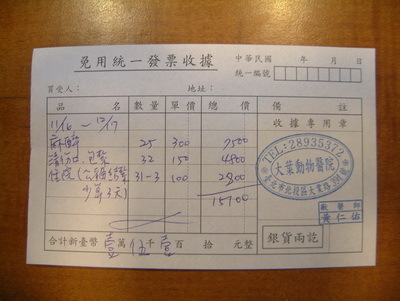 免用統一發票收據
中華民國 年 月 日
統一編號
買受人： 地址：
品名 數量 單價 總價 備註
收據專用章
11/16 ~ 12/17
麻醉 25 300 7500
清加 包紮 32 150 4800
住院(公籍結紮 31-3 100 2800
少算3天)
15100
TEL:28935372
大業動物醫院
台北市北投區大業路
獸醫師
黃仁佑
銀貨兩訖
合計新臺幣 壹萬伍千壹百 拾 元整